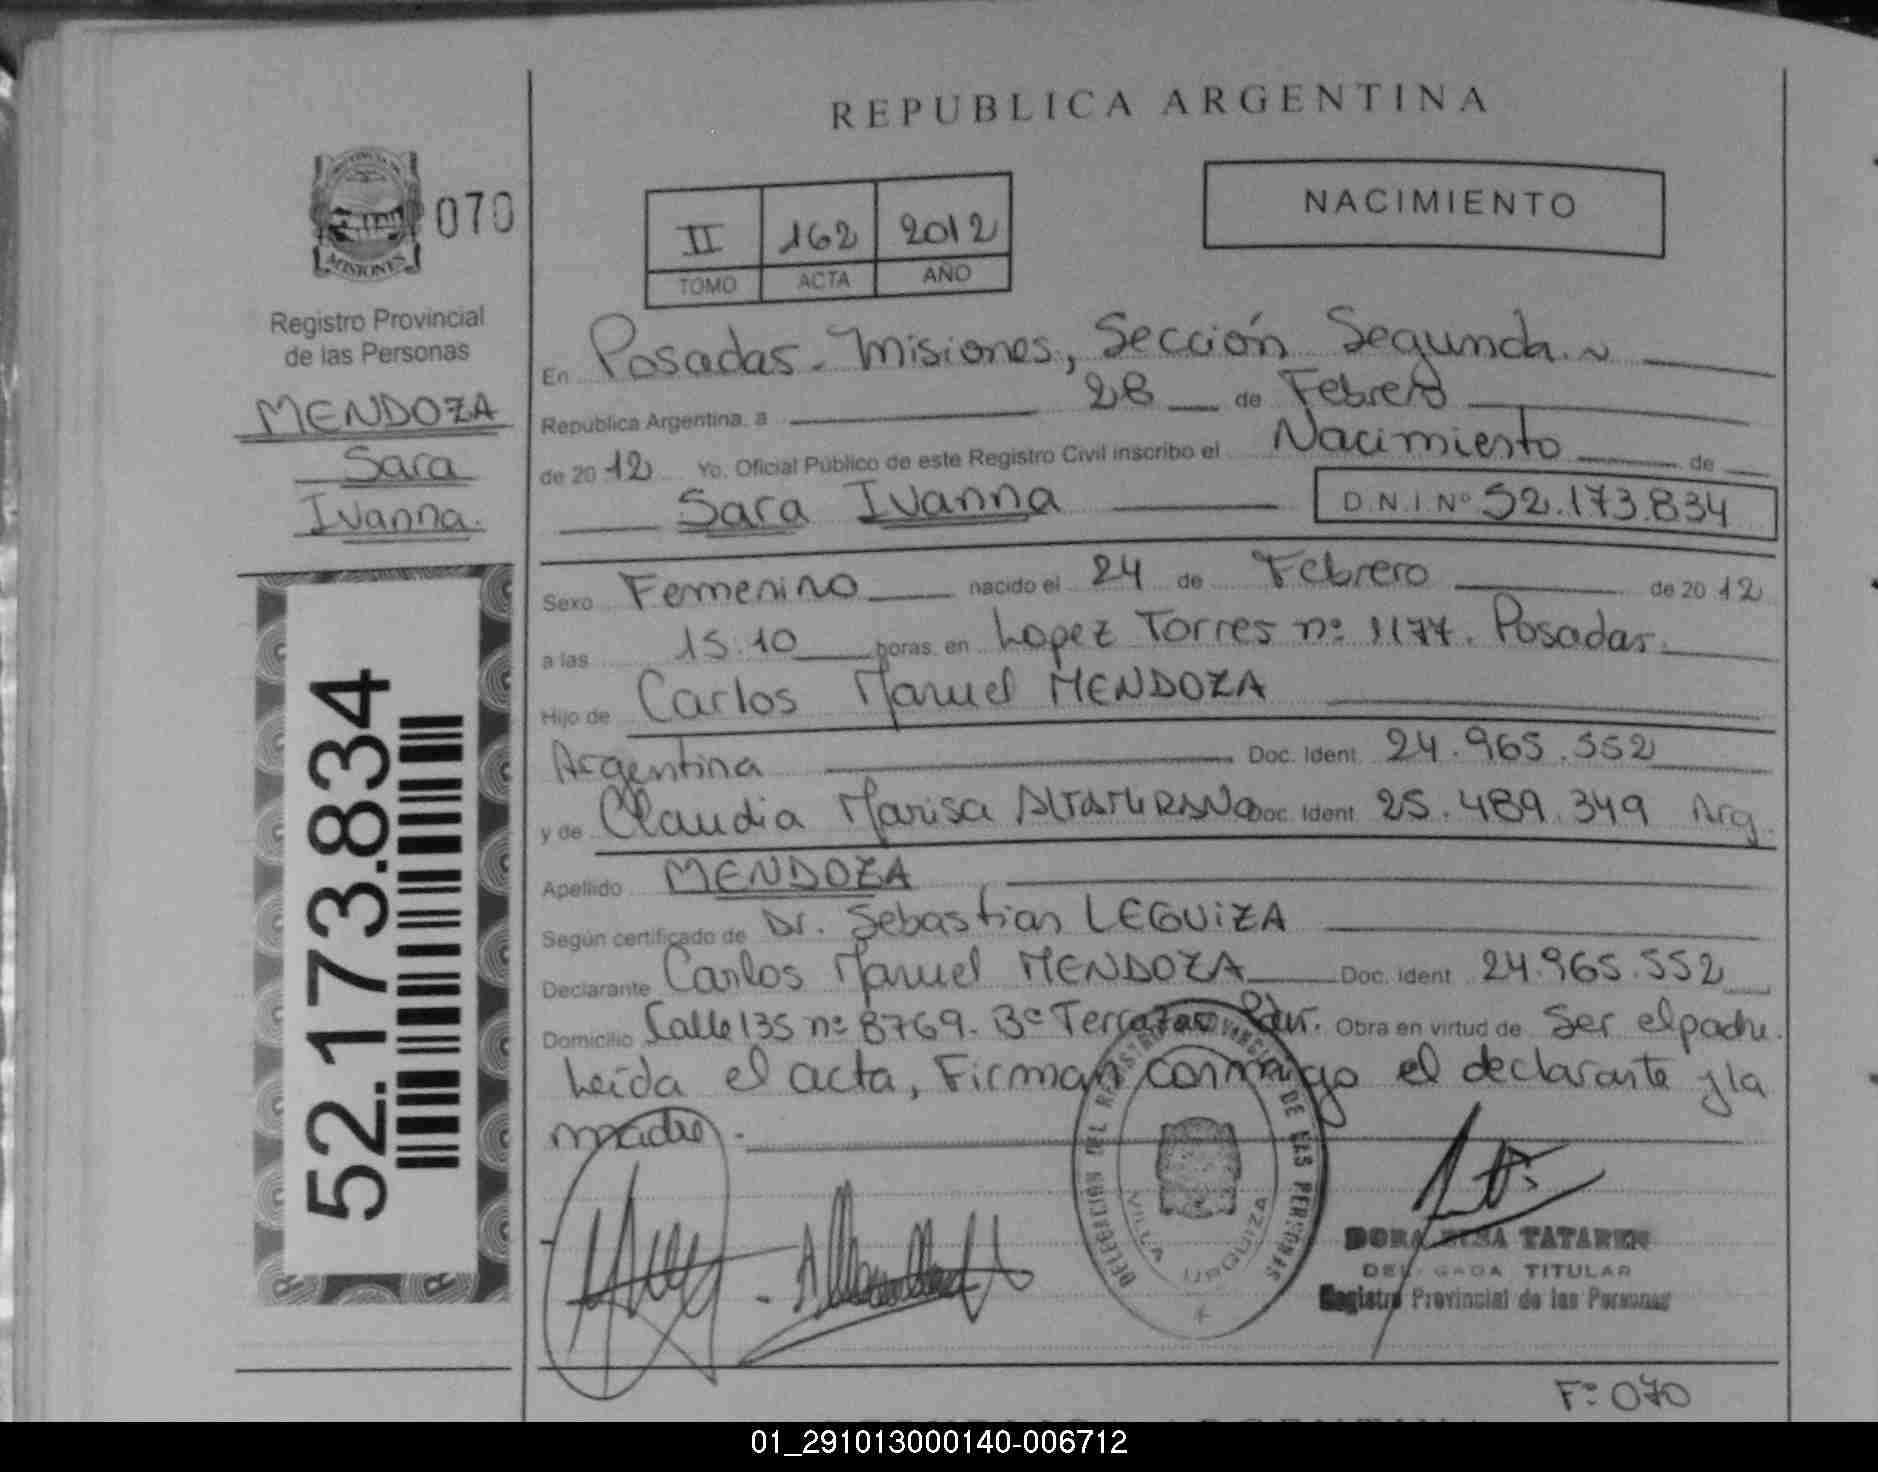 REPUBLICA ARGENTINA
PROVINCIA DE
MISIONES
070
Registro Provincial
de las Personas
MENDOZA
Sara
Ivanna.
52.173.834
II 162 2012
TOMO ACTA AÑO
NACIMIENTO
En Posadas - Misiones, Sección Segunda.
República Argentina, a 28 de Febrero
de 2012 Yo, Oficial Público de este Registro Civil inscribo el Nacimiento de
Sara Ivanna D.N.I. Nº 52.173.834
Sexo Femenino nacido el 24 de Febrero de 2012
a las 15.10 horas, en Lopez Torres nº 1177. Posadas.
Hijo de Carlos Manuel MENDOZA
Argentina Doc. Ident. 24.965.552
y de Claudia Marisa ALTAMIRANO Doc. Ident. 25.489.349 Arg.
Apellido MENDOZA
Según certificado de Dr. Sebastian LEGUiZA
Declarante Carlos Manuel MENDOZA Doc. Ident. 24.965.552
Domicilio Calle 135 nº 8769. Bº Terrazas Pdas. Obra en virtud de ser el padre.
Leída el acta, Firman conmigo el declarante y la
madre.
DELEGACION DEL REGISTRO PROVINCIAL DE LAS PERSONAS
VILLA URQUIZA
DORA ELSA TATAREN
DELEGADA TITULAR
Registro Provincial de las Personas
Fº 070
01_291013000140-006712